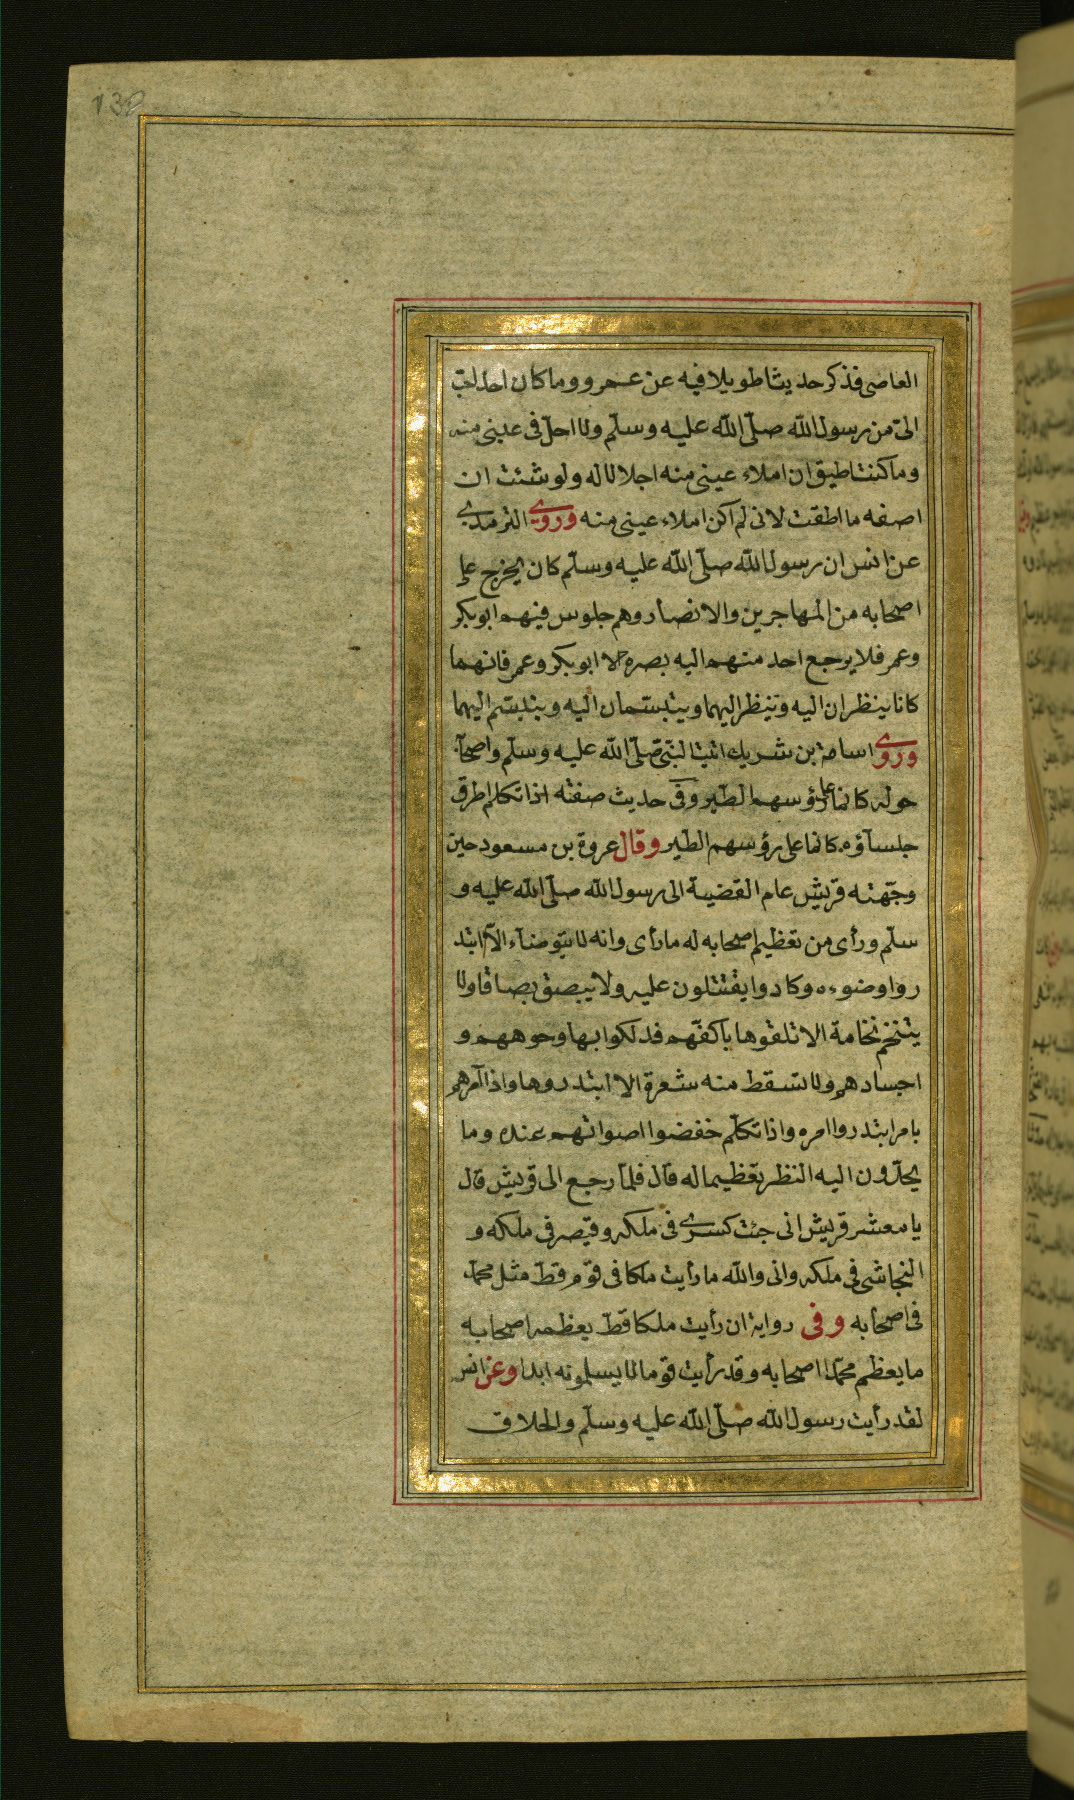 138
العاصى فذكر حديثا طويلا فيه عن عمرو وما كان احد احب
الىّ من رسول الله صلّى الله عليه وسلّم ولا احلّ فى عينى منه
وما كنت اطيق ان املاء عينى منه اجلالا له ولو شئت ان
اصفه ما اطقت لانى لم اكن املاء عينى منه وروى الترمذى
عن انس ان رسول الله صلّى الله عليه وسلّم كان يخرج على
اصحابه من المهاجرين والانصار وهم جلوس فيهم ابوبكر
وعمر فلا يرجع احد منهم اليه بصره الا ابوبكر وعمر فانهما
كانا ينظران اليه وينظر اليهما ويتبسّمان اليه ويتبسّم اليهما
وروى اسامة بن شريك اتيت النّبىّ صلّى الله عليه وسلّم واصحابه
حوله كانما على رؤسهم الطّير وفى حديث صفته اذا تكلم اطرق
جلسآؤه كانما على رؤسهم الطّير وقال عروة بن مسعود حين
وجّهته قريش عام القضية الى رسول الله صلّى الله عليه و
سلّم ورأى من تعظيم اصحابه له ما رأى وانه لا يتوضاء الّا ابتد
روا وضوءه وكادوا يقتتلون عليه ولا يبصق بصاقا ولا
يتنخم نخامة الا تلقوها باكفّهم فدلكوا بها وجوههم و
اجسادهم ولا تسقط منه شعرة الا ابتدروها واذا امرهم
بامر ابتدروا امره واذا تكلّم خفضوا اصواتهم عنده وما
يحدّون اليه النظر تعظيما له قال فلمّا رجع الى قريش قال
يا معشر قريش انى جئت كسرى فى ملكه وقيصر فى ملكه و
النجاشى فى ملكه وانى والله ما رأيت ملكا فى قوم قطّ مثل محمّد
فى اصحابه وفى رواية ان رأيت ملكا قطّ يعظمه اصحابه
ما يعظم محمّدا اصحابه وقد رأيت قوما لا يسلمونه ابدا وعن انس
لقد رأيت رسول الله صلّى الله عليه وسلّم والحلاق